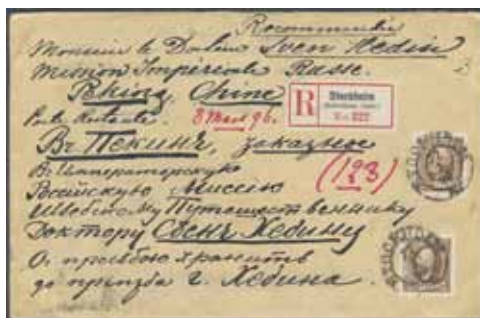 Recommandée
Monsieur le Docteur Sven Hedin
Mission Impériale Russe.
Peking, Chine
Poste Restante. 8 Mars 96.
R Stockholm
No 822
Въ Пекинъ, заказное
(123)
Въ Императорскую
Россійскую Миссію
Шведскому Путешественнику
Доктору Свенъ Хедину
Съ просьбою хранить
до пріѣзда г. Хедина.
STOCKHOLM
STOCKHOLM